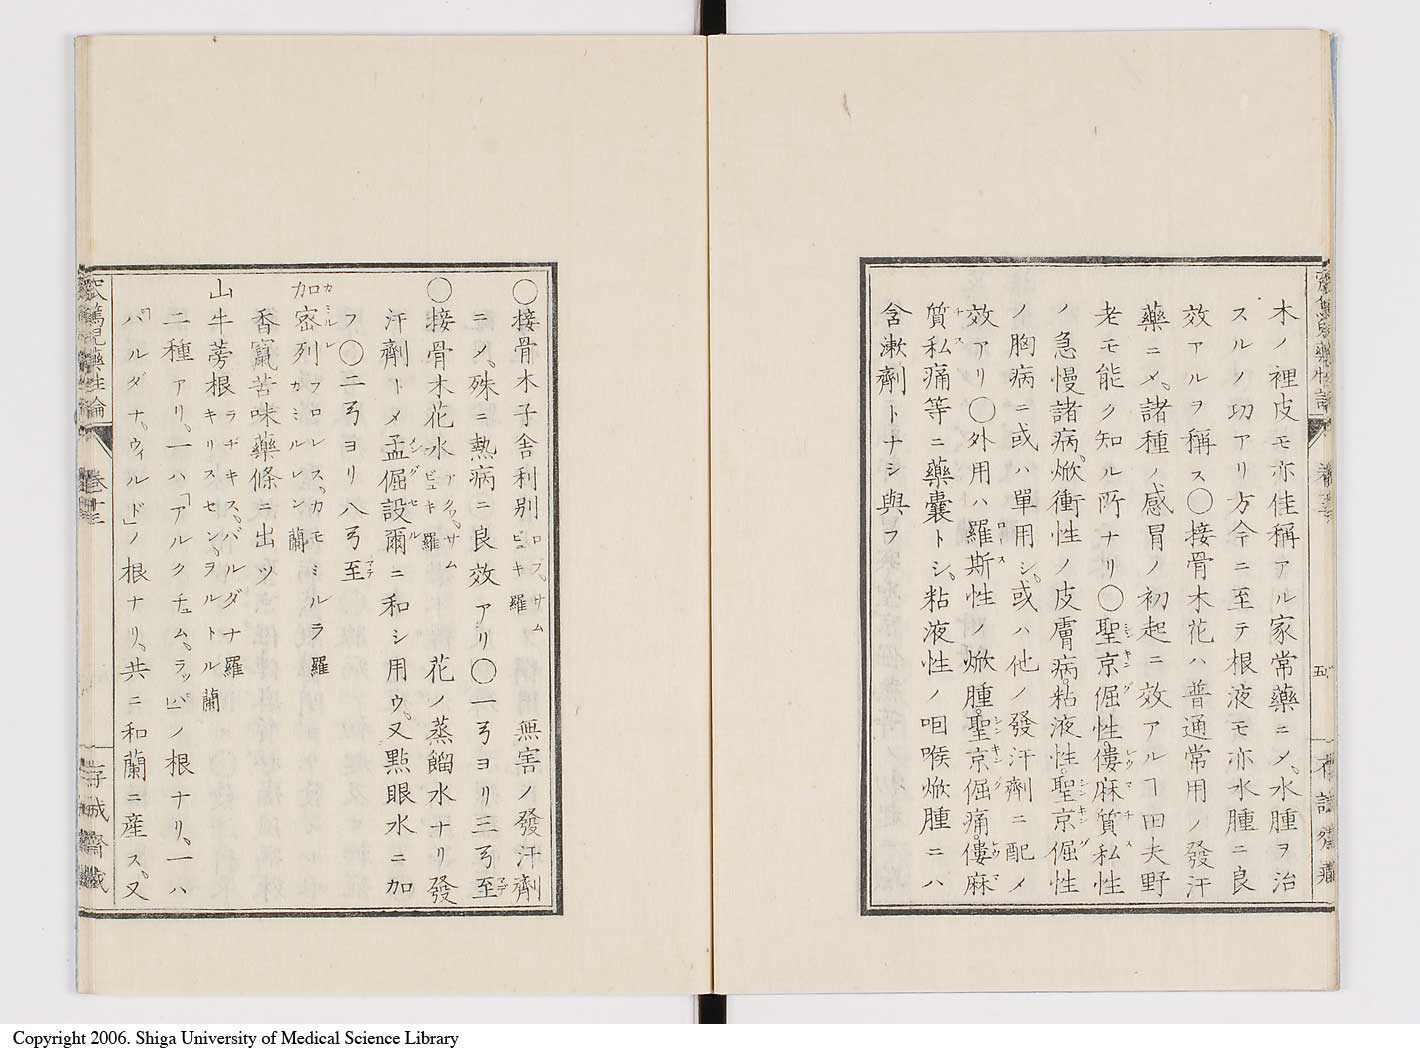 木ノ裡皮モ亦佳稱アル家常藥ニメ、水腫ヲ治
スルノ功アリ方今ニ至テ根液モ亦水腫ニ良
效アルヲ稱ス〇接骨木花ハ普通常用ノ發汗
藥ニメ、諸種ノ感冒ノ初起ニ效アルヿ田夫野
老モ能ク知ル所ナリ〇聖京倔性僂麻質私性
ノ急慢諸病、焮衝性ノ皮膚病、粘液性、聖京倔性
ノ胸病ニ或ハ單用シ、或ハ他ノ發汗劑ニ配メ
效アリ〇外用ハ羅斯性ノ焮腫、聖京倔痛、僂麻
質私痛等ニ藥囊トシ、粘液性ノ咽喉焮腫ニハ
含漱劑トナシ與フ
五
〇接骨木子舎利別 ロブ、サム ビュキ 羅 無害ノ發汗劑
ニメ、殊ニ熱病ニ良效アリ〇一弓ヨリ三弓至
〇接骨木花水 アクワ、サム ビュキ 羅 花ノ蒸餾水ナリ發
汗劑トメ孟倔設爾ニ和シ用ウ、又點眼水ニ加
フ〇二弓ヨリ八弓至
加密列 フロレス、カモミルラ 羅 カミルレン 蘭
香竄苦味藥條ニ出ツ
山牛蒡根 ラヂキス、バルダナ 羅 キリスセン、ヲルトル 蘭
二種アリ、一ハ「アルクチュム、ラッパ」ノ根ナリ、一ハ
「バルダナ、ウィルド」ノ根ナリ、共ニ和蘭ニ産ス、又
窊篤児藥性論 卷十三
存誠齋蔵